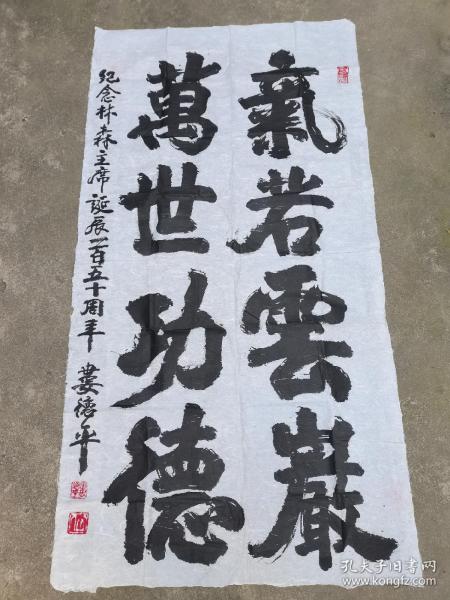 氣若雲巖
萬世功德
紀念林森主席誕辰一百五十周年 婁德平
孔夫子旧书网
www.kongfz.com